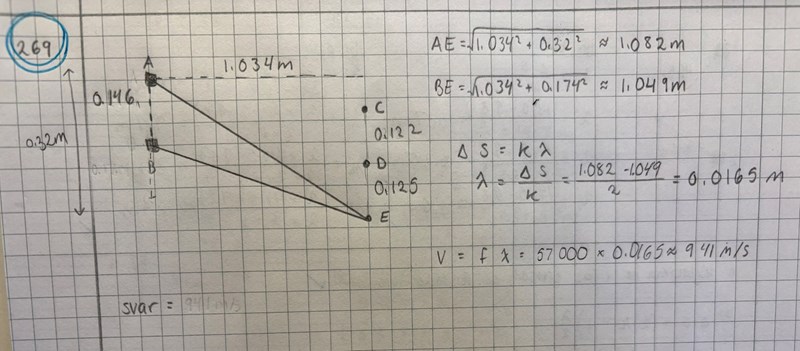 269
A
1.034m
0.146
0.32m
B
C
0.122
D
0.125
E
AE = √1.034² + 0.32² ≈ 1.082m
BE = √1.034² + 0.174² ≈ 1.049m
Δ S = k λ
λ = ΔS/k = 1.082 - 1.049/2 = 0.0165 m
V = f λ = 57 000 × 0.0165 ≈ 941 m/s
svar = 941 m/s